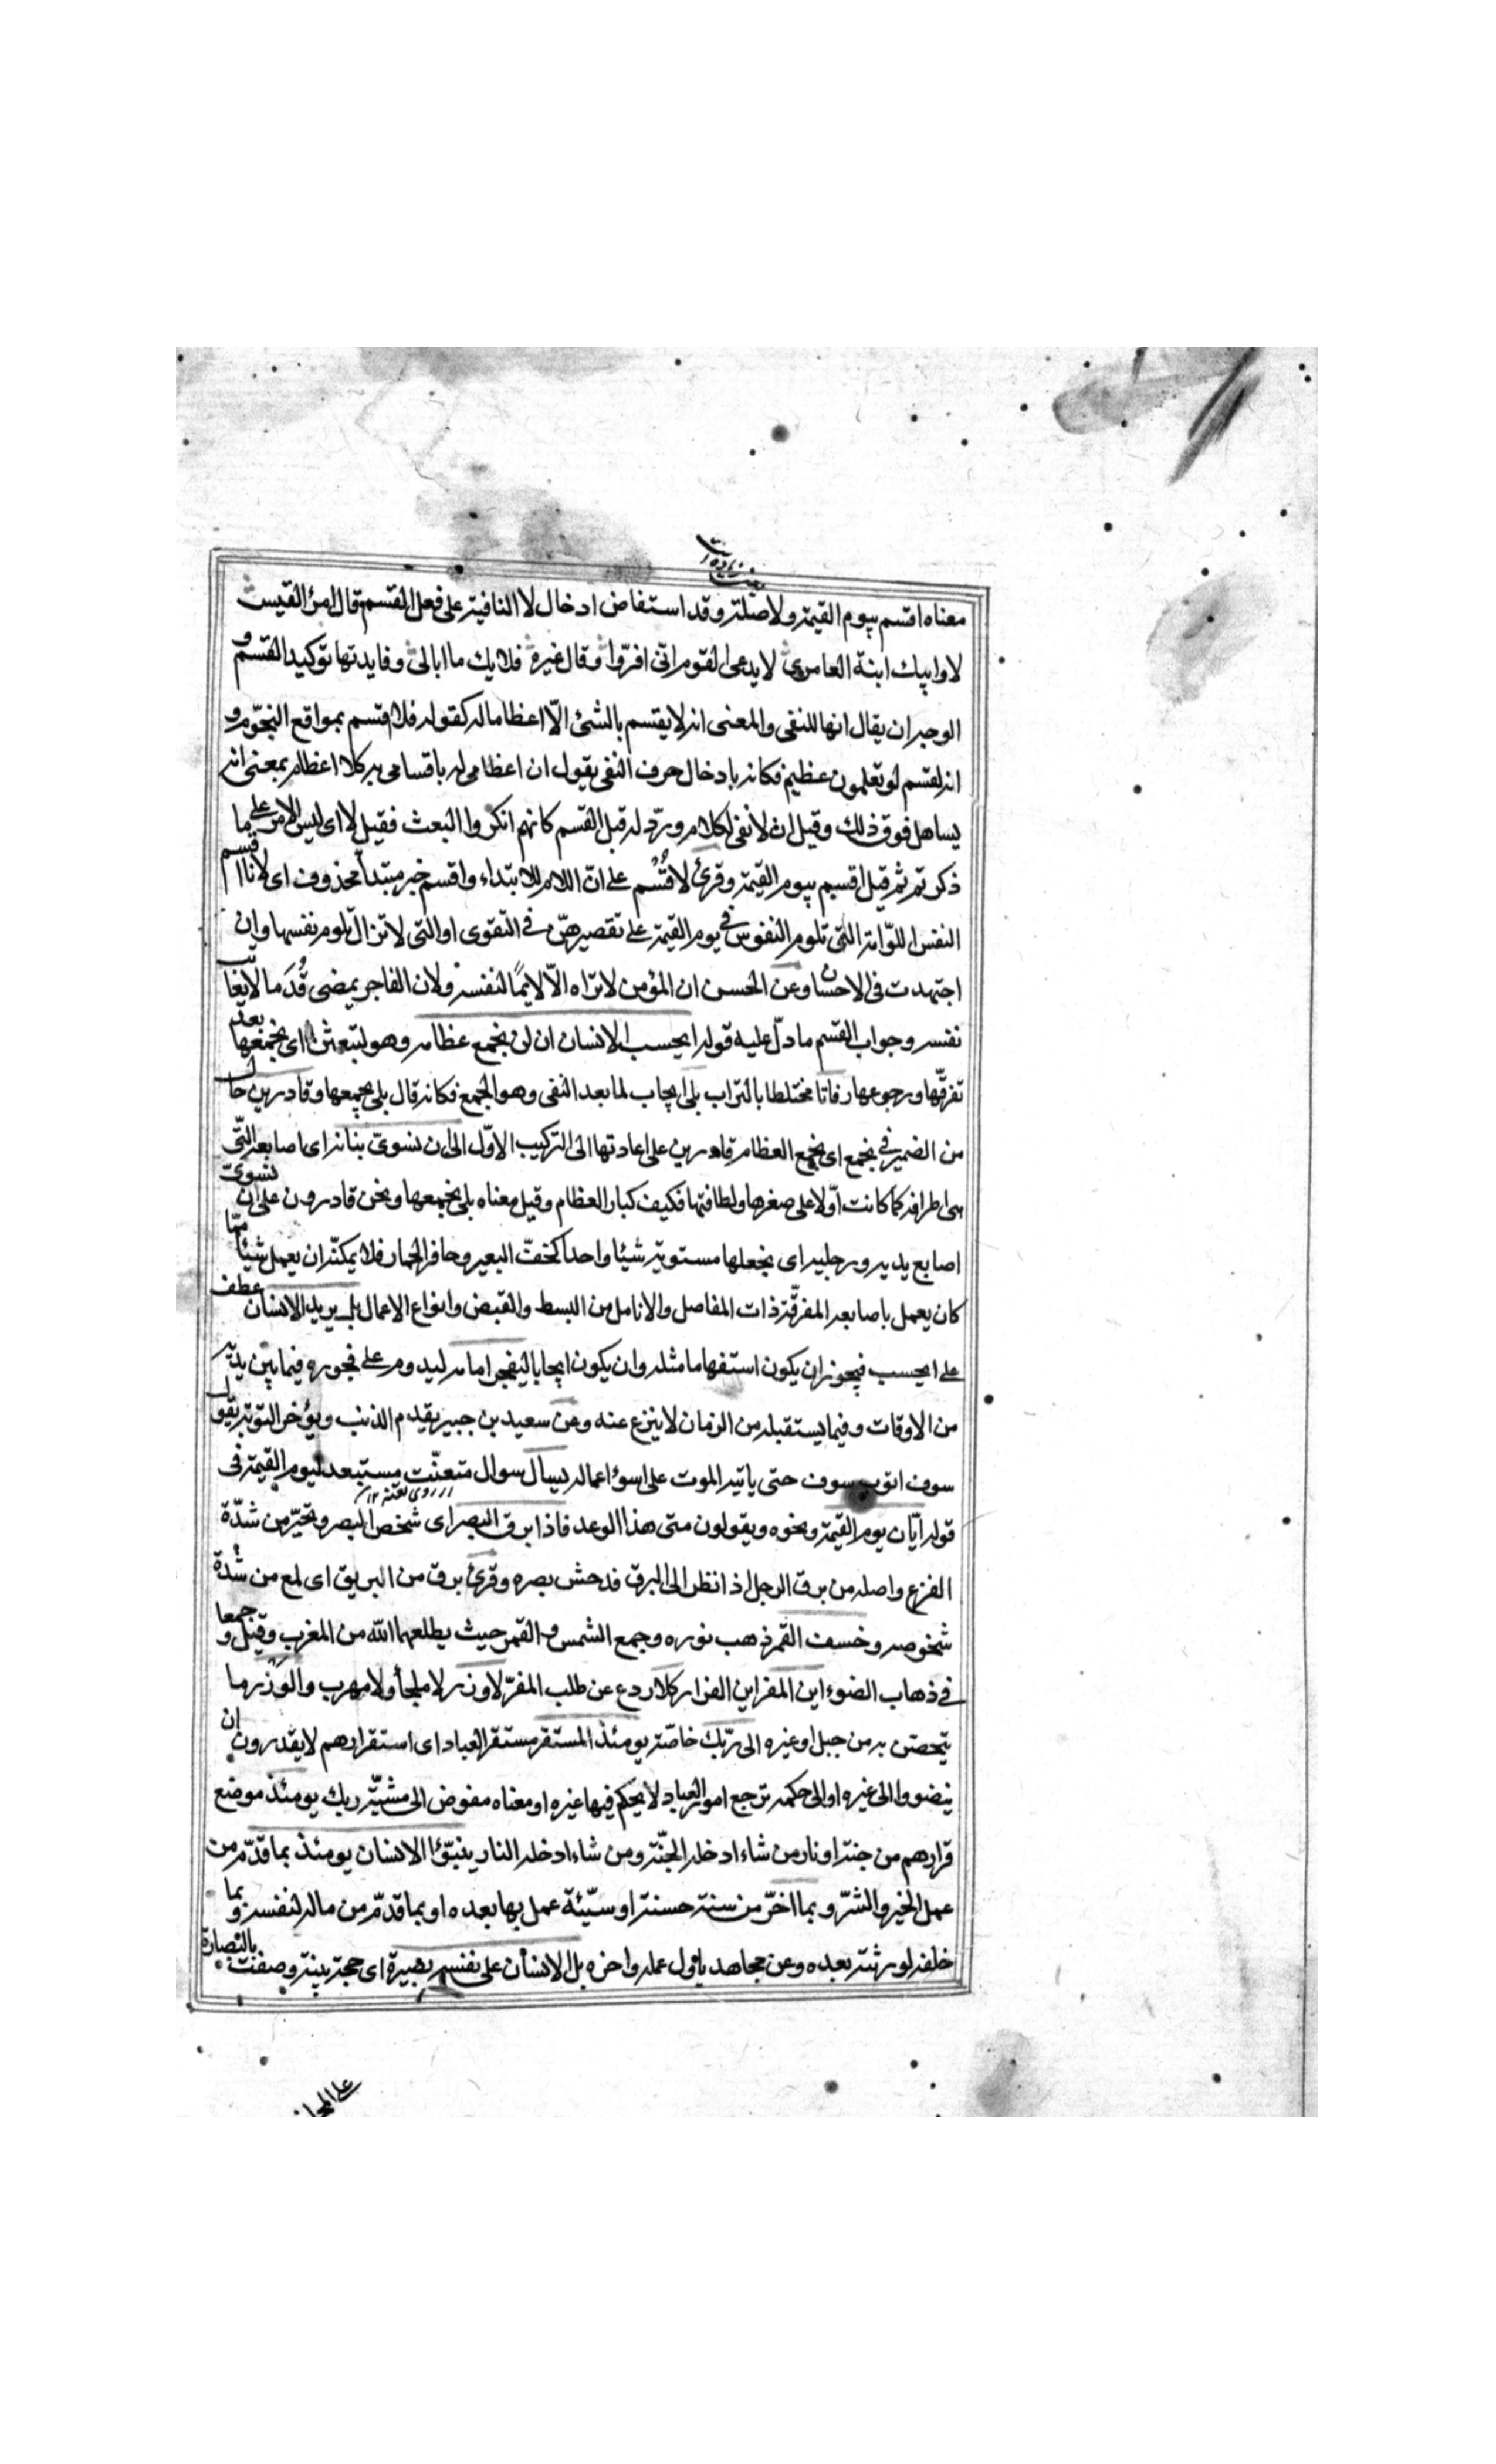 معناه اقسم بيوم القيمة ولا صلة وقد استفاض ادخال لا النافية على فعل القسم قال امرئ القيس
لا وابيك ابنة العامري لا يدعى القوم انّى افرّ وقال غيره فلا بك ما ابالى وفايدتها توكيد القسم و
الوجه ان يقال انها للنفى والمعنى انه لا يقسم بالشئ الّا اعظاما له كقوله فلا اقسم بمواقع النجوم و
انه لقسم لو تعلمون عظيم فكانه بادخال حرف النفى يقول ان اعظامى له باقسامى به كلا اعظام بمعنى انه
يساهل فوق ذلك وقيل ان لا نفى لكلام وردّ له قبل القسم كانهم انكروا البعث فقيل لا اى ليس الامر على ما
ذكرتم ثم قيل اقسم بيوم القيمة وقرئ لاقسم على انّ اللام للابتداء واقسم خبر مبتدأ محذوف اى لانا اقسم
النفس اللوّامة التى تلوم النفوس فى يوم القيمة على تقصيرهنّ فى التقوى او التى لا تزال تلوم نفسها وان
اجتهدت فى الاحسان وعن الحسن ان المؤمن لا تراه الّا لايمًا لنفسه ولان الفاجر يمضى قُدُما لا يعاتب
نفسه وجواب القسم ما دلّ عليه قوله ايحسب الانسان ان لن نجمع عظامه وهو لتبعثن اى نجمعها بعد
تفرقّها ورجوعها رفاتا مختلطا بالتراب بلى ايجاب لما بعد النفى وهو الجمع فكانه قال بلى نجمعها وقادرين حال
من الضمير فى نجمع اى نجمع العظام قادرين على اعادتها الى التركيب الاوّل الى ان نسوى بنانه اى اصابعه التّى
هى اطرافه كما كانت اوّلا على صغرها ولطافتها فكيف كبار العظام وقيل معناه بلى نجمعها ونحن قادرون على ان نسوّى
اصابع يديه ورجليه اى نجعلها مستوية شيئا واحدا كخفّ البعير وحافر الحمار فلا يمكنه ان يعمل شيئا ممّا
كان يعمل باصابعه المفرقّة ذات المفاصل والانامل من البسط والقبض وانواع الاعمال بل يريد الانسان عطف
على ايحسب فيجوز ان يكون استفهاما مثله وان يكون ايجابا ليفجر امامه ليدوم على فجوره فيما بين يديه
من الاوقات وفيما يستقبله من الزمان لا ينزع عنه وعن سعيد بن جبير يقدم الذنب ويؤخر التوبة يقول
سوف اتوب سوف حتى ياتيه الموت على اسوء اعماله يسال سوال متعنّت مستبعد ليوم القيمة فى
قوله ايّان يوم القيمة ونحوه ويقولون متى هذا الوعد فاذا برق البصر اى شخص البصر وتحيّر من شدّة
الفزع واصله من برق الرجل اذا نظر الى البرق فدهش بصره وقرئ برق من البريق اى لمع من شدّة
شخوصه وخسف القمر ذهب نوره وجمع الشمس والقمر حيث يطلعهما الله من المغرب وقيل وجمعا
فى ذهاب الضوء اين المفر اين الفرار كلا ردع عن طلب المفرّ لا وزر لا ملجأ ولا مهرب والوَزَر ما
يتحصّن به من جبل او غيره الى ربّك خاصّة يومئذ المستقر مستقر العباد اى استقرارهم لا يقدرون ان
ينضووا الى غيره او الى حكمه ترجع امور العباد لا يحكم فيها غيره او معناه مفوض الى مشيّة ربك يومئذ موضع
قرارهم من جنة او نار من شاء ادخله الجنّة ومن شاء ادخله النار ينبّؤا الانسان يومئذ بما قدّم من
عمل الخير والشرّ وبما اخرّ من سنة حسنة او سيّئة عمل بها بعده او بما قدّم من ماله لنفسه وبما
خلفه لورثته بعده وعن مجاهد باوّل عمله واخره بل الانسان على نفسه بصيرة اى حجة بينة وصفت بالبصارة